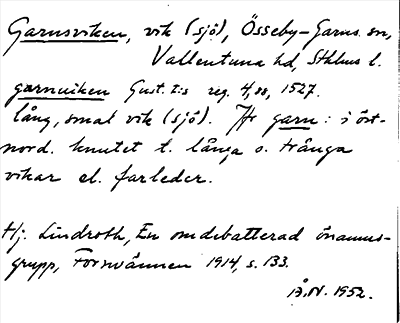 Garnsviken, vik (sjö), Össeby-Garns sn,
Vallentuna hd, Sthlms l.
garnuiken Gust. I:s reg. 4, 88, 1527.
lång, smal vik (sjö). Jfr garn: i öst-
nord. knutet t. långa o. trånga
vikar el. farleder.
Hj. Lindroth, En omdebatterad önamns-
grupp, Fornvännen 1914, s. 133.
1952.